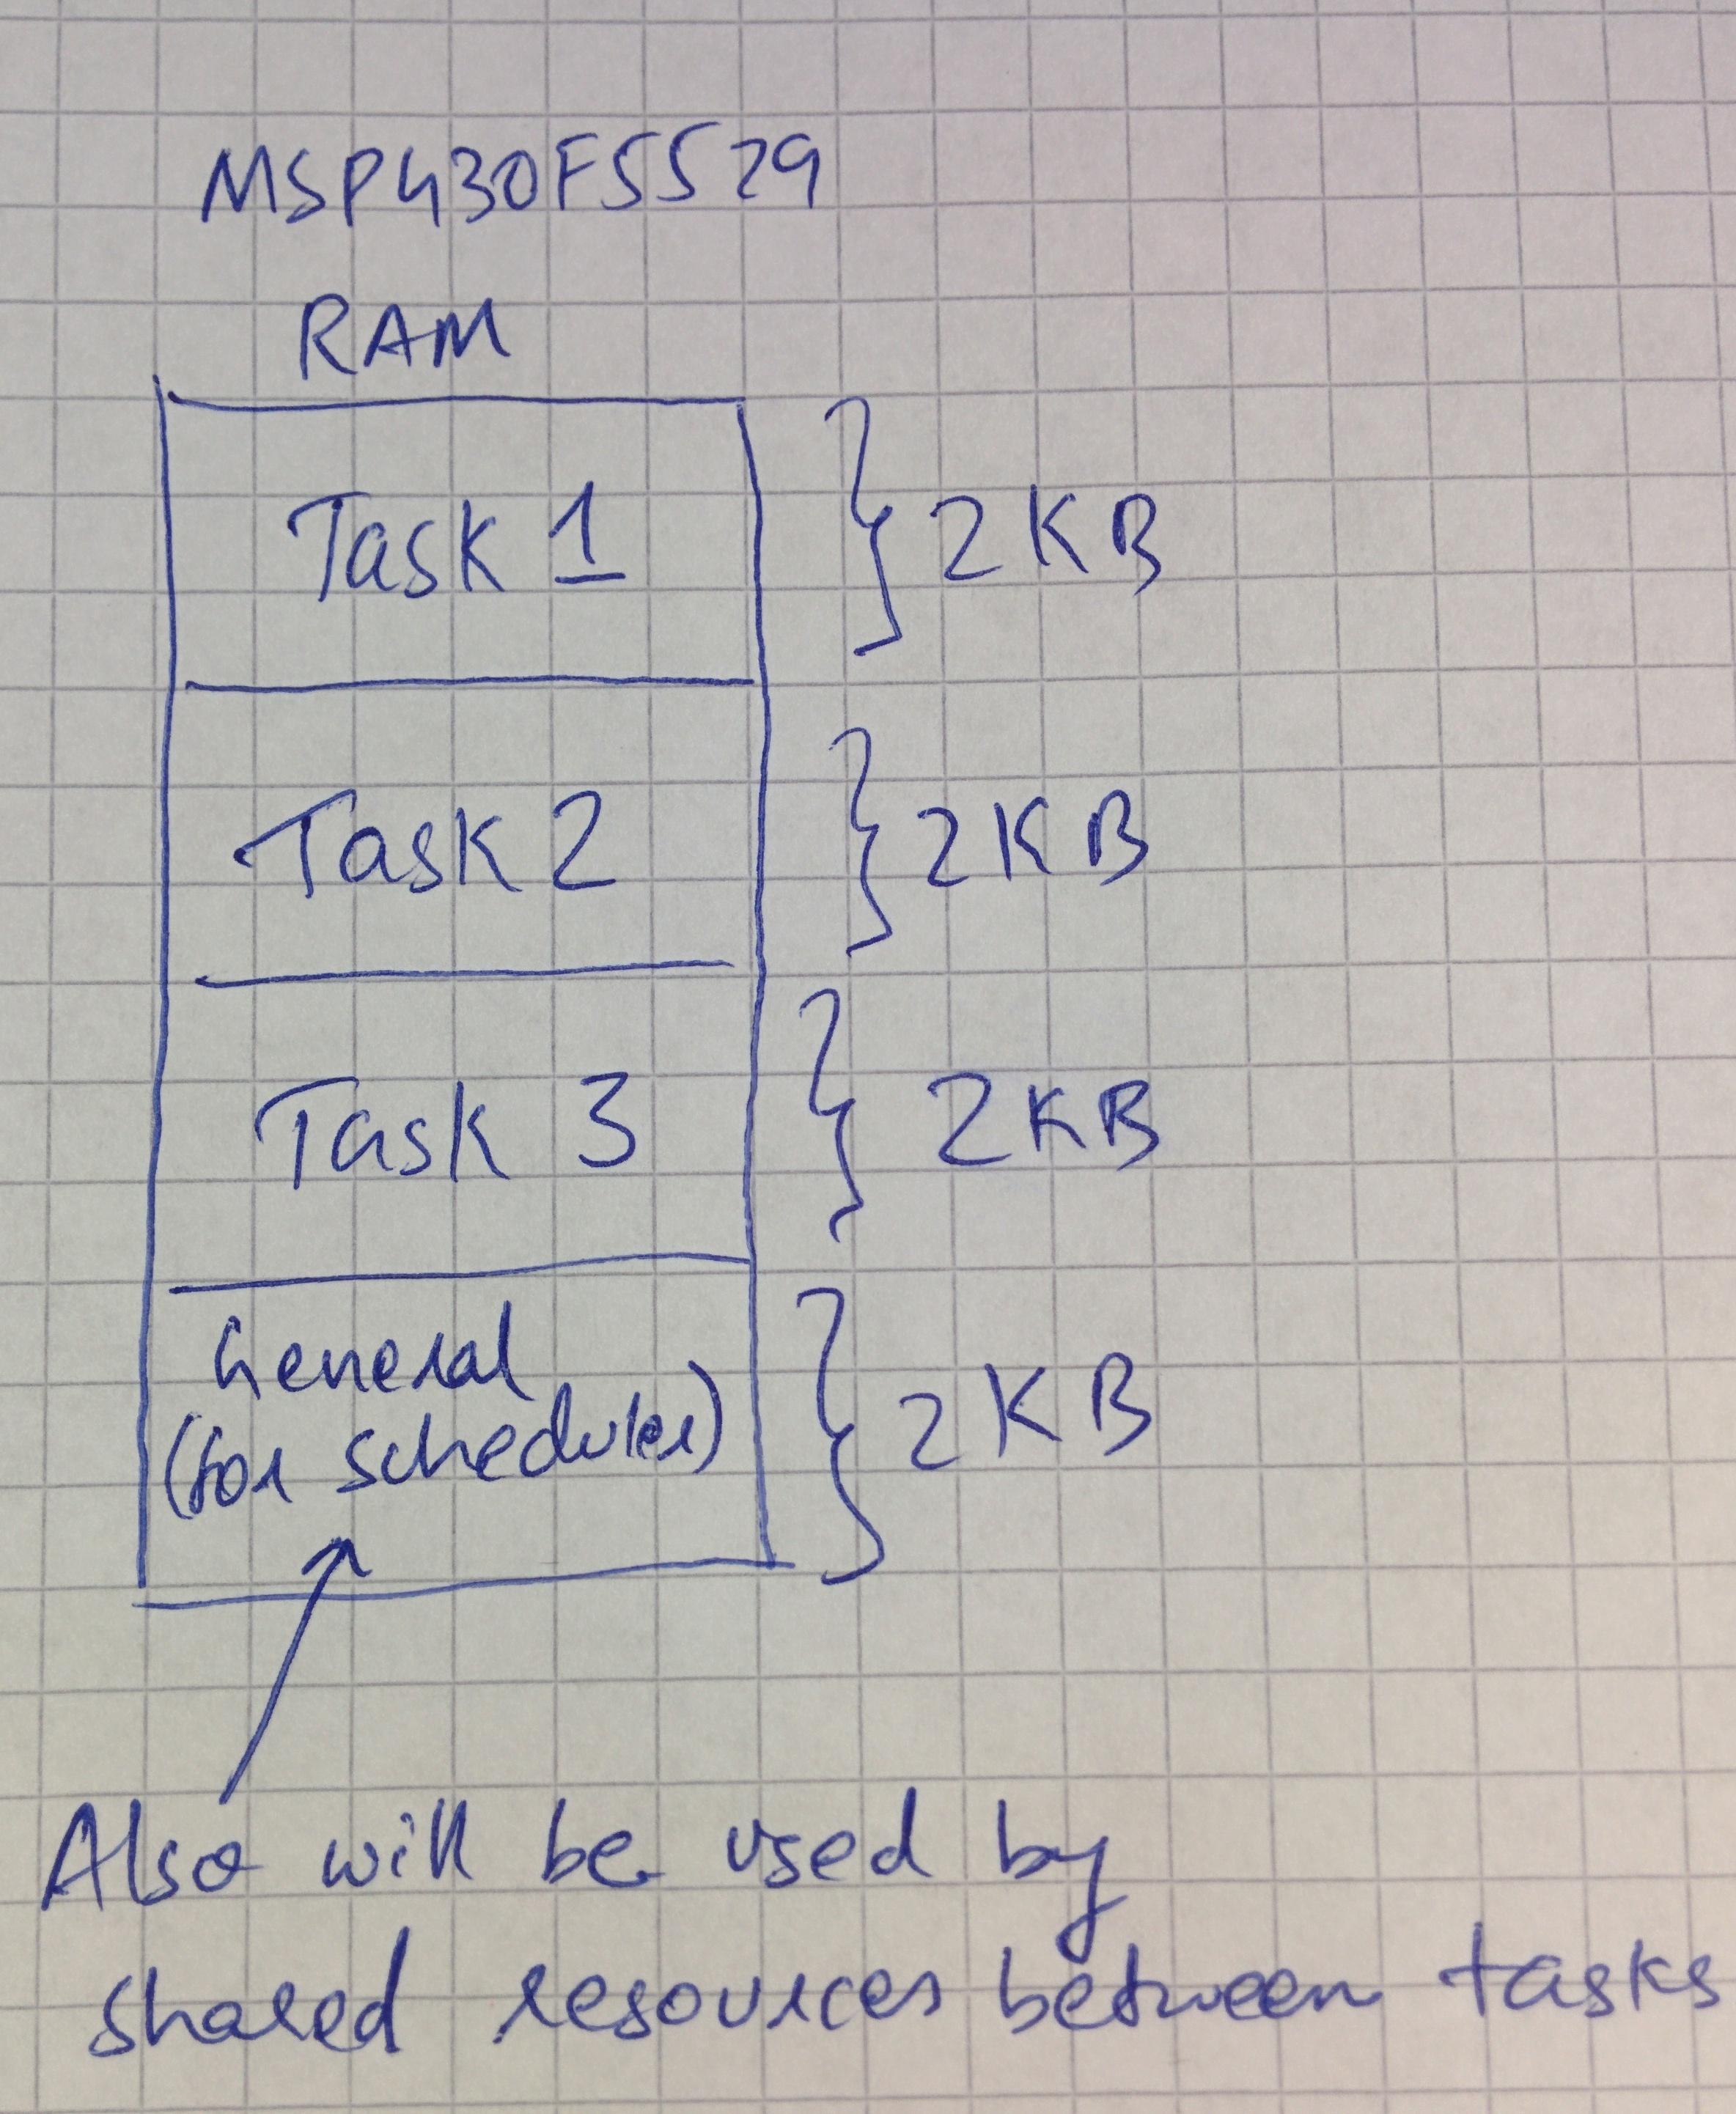 MSP430F5529
RAM
Task 1
} 2KB
Task 2
} 2KB
Task 3
} 2KB
General
(for scheduler)
} 2KB
Also will be used by
shared resources between tasks